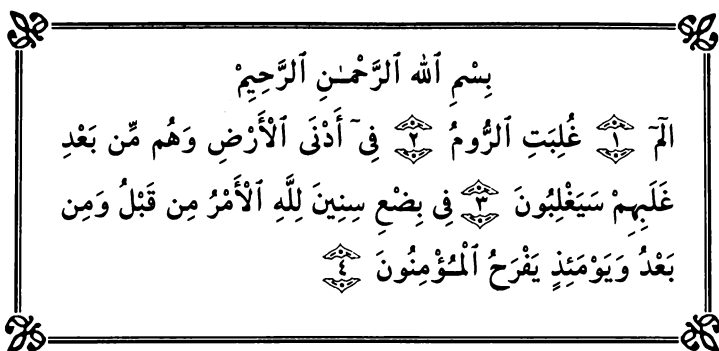 بِسْمِ ٱللهِ ٱلرَّحْمَـٰنِ ٱلرَّحِيمِْ
الٓمٓ ١ غُلِبَتِ ٱلرُّومُ ٢ فِىٓ أَدْنَى ٱلْأَرْضِ وَهُم مِّن بَعْدِ
غَلَبِهِمْ سَيَغْلِبُونَ ٣ فِى بِضْعِ سِنِينَ لِلَّهِ ٱلْأَمْرُ مِن قَبْلُ وَمِن
بَعْدُ وَيَوْمَئِذٍ يَفْرَحُ ٱلْمُؤْمِنُونَ ٤